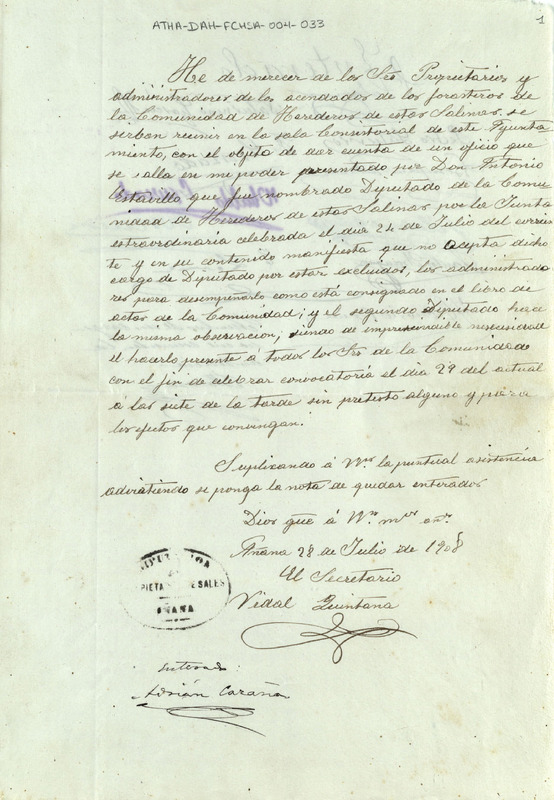 ATHA-DAH-FCHSA-004-033
1
He de merecer de los Sres Propietarios y
administradores de los acendados de los forasteros de
la Comunidad de Herederos de estas Salinas, se
sirban reunir en la sala Consistorial de este Ayunta
miento, con el objeto de dar cuenta de un oficio que
se alla en mi poder presentado por Don Antonio
que fué nombrado Diputado de la Comu
nidad de Herederos de estas Salinas por la Junta
estraordinaria celebrada el dia 24 de Julio del corrien
te y en su contenido manifiesta que no acepta dicho
cargo de Diputado por estar excluidos, los administrado
res para desempeñarlo como está consignado en el libro de
actas de la Comunidad; y el segundo Diputado hace
la misma observacion, siendo de imprescindible
el hacerlo presente á todos los Sres de la Comunidad
con el fin de celebrar convocatoria el dia 29 del actual
a las siete de la tarde sin pretesto alguno y para
los efectos que convengan.
Suplicando á Vds la puntual asistencia
advirtiendo se ponga la nota de quedar enterados
Dios gue á Vds ms as
Añana 28 de Julio de 1908
El Secretario
Vidal Quintana
SALES
AÑANA
Enterado:
Adrián